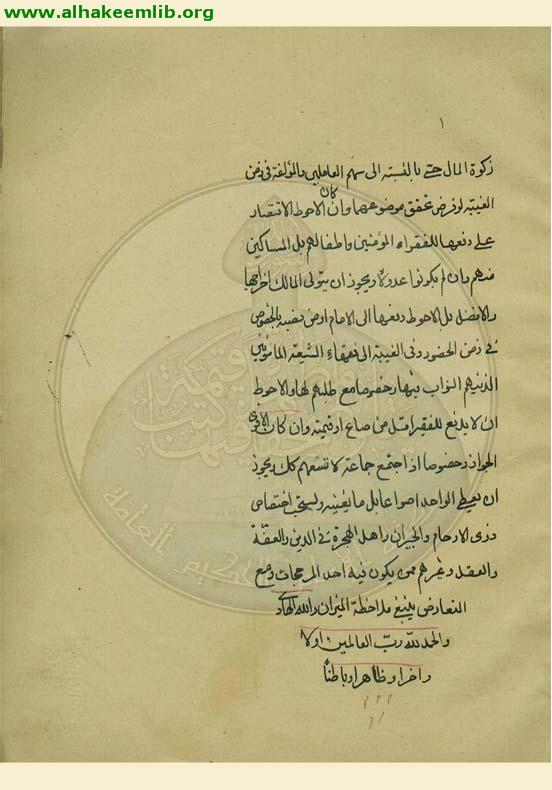 www.alhakeemlib.org
١
زكوة المال حتى بالنسبة الى سهم العاملين والمؤلفة في زمن
الغيبة لو فرض تحقق موضوعهما وان كان الاحوط الاقتصار
على دفعها للفقراء المؤمنين واطفالهم بل المساكين
منهم وان لم يكونوا عدولا ويجوز ان يتولى المالك اخراجها
والافضل بل الاحوط دفعها الى الامام او من نصبه بالخصوص
في زمن الحضور وفي الغيبة الى فقهاء الشيعة المأمونين
الذين هم النواب فيها خصوصا مع طلبهم لها والاحوط
ان لا يدفع للفقير اقل من صاع او قيمته وان كان الاقوى
الجواز خصوصا اذا اجتمع جماعة لا تسعهم كل ويجوز
ان يعطى الواحد اصواعا بل ما يغنيه ويستحب اختصاص
ذوى الارحام والجيران واهل الهجرة في الدين والعفة
والعقل وغيرهم ممن يكون فيه احد المرجحات ومع
التعارض ينبغي ملاحظة الميزان والله الهاد
والحمد لله رب العالمين اولا
واخرا وظاهرا وباطنا